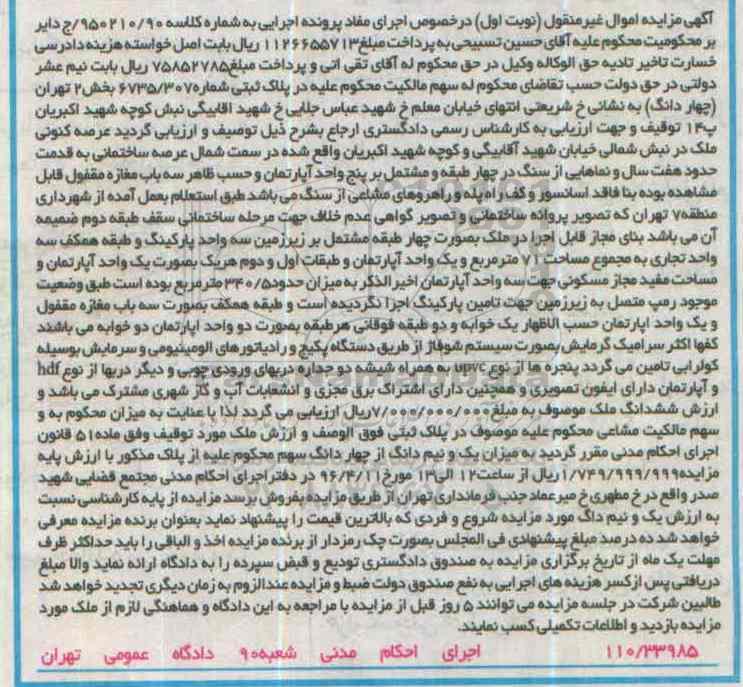 آگهی مزایده اموال غیرمنقول (نوبت اول) درخصوص اجرای مفاد پرونده اجرایی به شماره کلاسه ۹۵۰۲۱۰/۹۰/ج دایر
بر محکومیت محکوم علیه آقای حسین تسبیحی به پرداخت مبلغ ۱۱۲۶۶۵۵۷۱۳ ریال بابت اصل خواسته هزینه دادرسی
خسارت تاخیر تادیه حق الوکاله وکیل در حق محکوم له آقای تقی اتی و پرداخت مبلغ ۷۵۸۵۲۷۸۵ ریال بابت نیم عشر
دولتی در حق دولت حسب تقاضای محکوم له سهم مالکیت محکوم علیه در پلاک ثبتی شماره ۶۷۳۵/۳۰۷۰ بخش ۲ تهران
(چهار دانگ) به نشانی خ شریعتی انتهای خیابان معلم خ شهید عباس جلایی خ شهید اقابیگی نبش کوچه شهید اکبریان
پ۱۴ توقیف و جهت ارزیابی به کارشناس رسمی دادگستری ارجاع بشرح ذیل توصیف و ارزیابی گردید عرصه کنونی
ملک در نبش شمالی خیابان شهید آقابیگی و کوچه شهید اکبریان واقع شده در سمت شمال عرصه ساختمانی به قدمت
حدود هفت سال و نماهایی از سنگ در چهار طبقه و مشتمل بر پنج واحد آپارتمان و حسب ظاهر سه باب مغازه مقفول قابل
مشاهده بوده بنا فاقد اسانسور و کف راه پله و راهروهای مشاعی از سنگ می باشد طبق استعلام بعمل آمده از شهرداری
منطقه ۷ تهران که تصویر پروانه ساختمانی و تصویر گواهی عدم خلاف جهت مرحله ساختمانی سقف طبقه دوم ضمیمه
آن می باشد بنای مجاز قابل اجرا در ملک بصورت چهار طبقه مشتمل بر زیرزمین سه واحد پارکینگ و طبقه همکف سه
واحد تجاری به مجموع مساحت ۷۱ مترمربع و یک واحد آپارتمان و طبقات اول و دوم هریک بصورت یک واحد آپارتمان و
مساحت مفید مجاز مسکونی جهت سه واحد آپارتمان اخیر الذکر به میزان حدود ۳۴۰/۵ مترمربع بوده است طبق وضعیت
موجود رمپ متصل به زیرزمین جهت تامین پارکینگ اجرا نگردیده است و طبقه همکف بصورت سه باب مغازه مقفول
و یک واحد اپارتمان حسب الاظهار یک خوابه و دو طبقه فوقانی هرطبقه بصورت دو واحد اپارتمان دو خوابه می باشند
کفها اکثر سرامیک گرمایش بصورت سیستم شوفاژ از طریق دستگاه پکیج و رادیاتورهای الومینیومی و سرمایش بوسیله
کولرابی تامین می گردد پنجره ها از نوع upvc به همراه شیشه دو جداره دربهای ورودی چوبی و دیگر دربها از نوع hdf
و آپارتمان دارای ایفون تصویری و همچنین دارای اشتراک برق مجزی و انشعابات آب و گاز شهری مشترک می باشد و
ارزش ششدانگ ملک موصوف به مبلغ ۷/۰۰۰/۰۰۰/۰۰۰ ریال ارزیابی می گردد لذا با عنایت به میزان محکوم به و
سهم مالکیت مشاعی محکوم علیه موصوف در پلاک ثبتی فوق الوصف و ارزش ملک مورد توقیف وفق ماده ۵۱ قانون
اجرای احکام مدنی مقرر گردید به میزان یک و نیم دانگ از چهار دانگ سهم محکوم علیه از پلاک مذکور با ارزش پایه
مزایده ۱/۷۴۹/۹۹۹/۹۹۹ ریال از ساعت ۱۲ الی ۱۳ مورخ ۹۶/۴/۱۱ در دفتر اجرای احکام مدنی مجتمع قضایی شهید
صدر واقع در خ مطهری خ میرعماد جنب فرمانداری تهران از طریق مزایده بفروش برسد مزایده از پایه کارشناسی نسبت
به ارزش یک و نیم داگ مورد مزایده شروع و فردی که بالاترین قیمت را پیشنهاد نماید بعنوان برنده مزایده معرفی
خواهد شد ده درصد مبلغ پیشنهادی فی المجلس بصورت چک رمزدار از برنده مزایده اخذ و الباقی را باید حداکثر ظرف
مهلت یک ماه از تاریخ برگزاری مزایده به صندوق دادگستری تودیع و قبض سپرده را به دادگاه ارائه نماید والا مبلغ
دریافتی پس از کسر هزینه های اجرایی به نفع صندوق دولت ضبط و مزایده عندالزوم به زمان دیگری تجدید خواهد شد
طالبین شرکت در جلسه مزایده می توانند ۵ روز قبل از مزایده با مراجعه به این دادگاه و هماهنگی لازم از ملک مورد
مزایده بازدید و اطلاعات تکمیلی کسب نمایند.
۱۱۰/۳۳۹۸۵ اجرای احکام مدنی شعبه ۹۰ دادگاه عمومی تهران